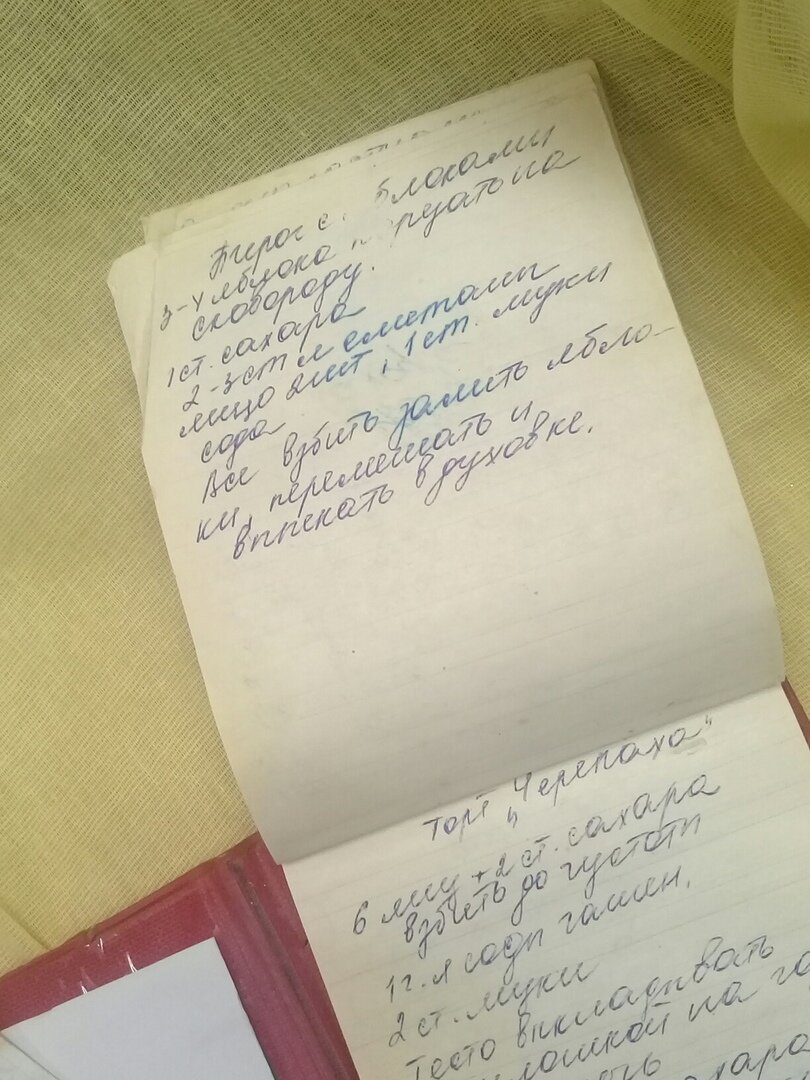 Пирог с яблоками
3-4 яблока на
сковороду.
1 ст. сахара
2-3 ст л сметаны
яйцо 2 шт, 1 ст. муки
сода
Все взбить залить ябло-
ки, перемешать и
выпекать в духовке.
Торт „Черепаха"
6 яиц + 2 ст. сахара
взбить до густоты
1 г. л соды гашен.
2 ст. муки
Тесто выкладывать
ложкой на
сахара